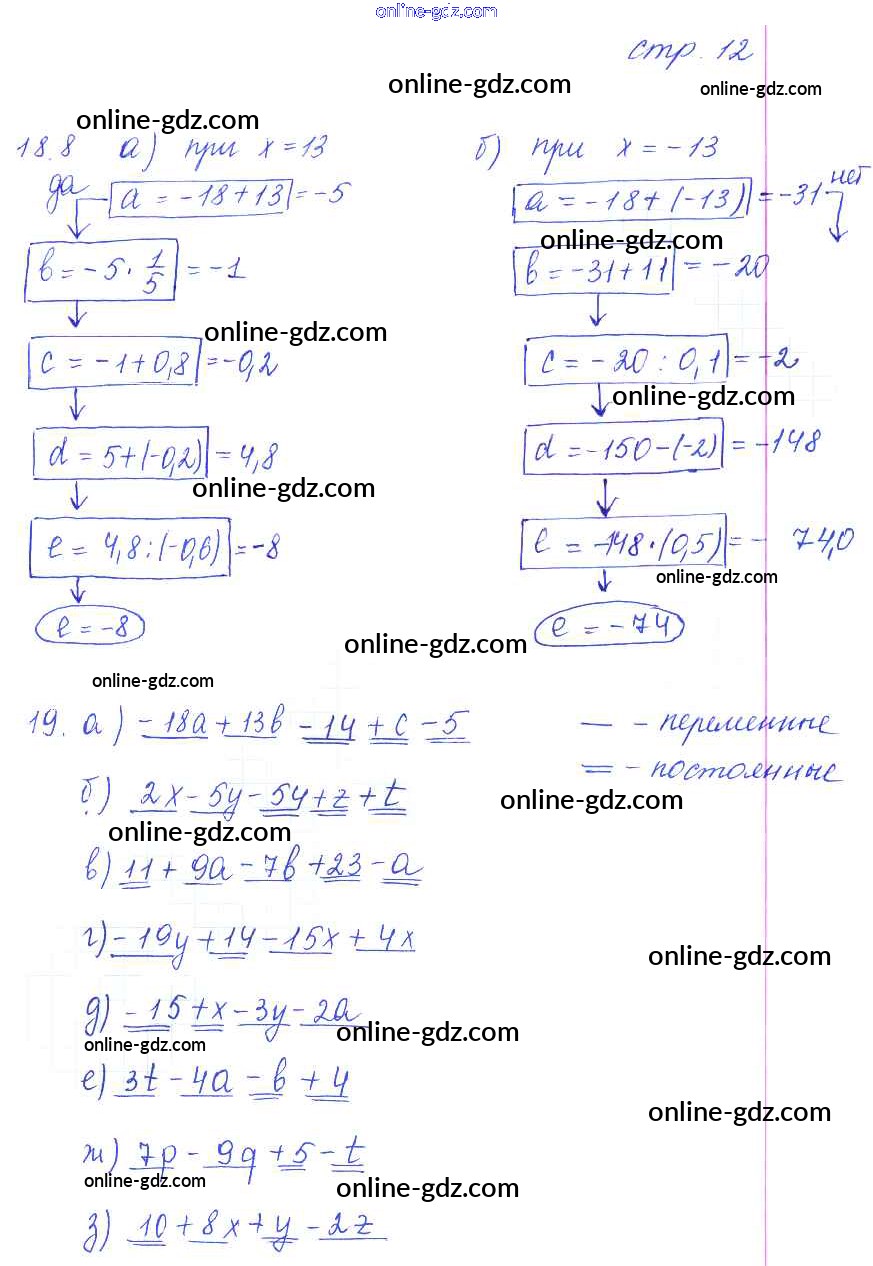 online-gdz.com
стр. 12
online-gdz.com
online-gdz.com
online-gdz.com
18.8 а) при x = 13
да
a = -18 + 13 = -5
b = -5 · 1/5 = -1
online-gdz.com
c = -1 + 0,8 = -0,2
d = 5 + (-0,2) = 4,8
online-gdz.com
e = 4,8 : (-0,6) = -8
e = -8
б) при x = -13
a = -18 + (-13) = -31 нет
online-gdz.com
b = -31 + 11 = -20
c = -20 : 0,1 = -2
online-gdz.com
d = -150 - (-2) = -148
e = -148 · (0,5) = - 74,0
online-gdz.com
e = -74
online-gdz.com
online-gdz.com
19. а) -18a + 13b - 14 + c - 5
— - переменные
= - постоянные
б) 2x - 5y - 5y + z + t
online-gdz.com
online-gdz.com
в) 11 + 9a - 7b + 23 - a
г) -19y + 14 - 15x + 4x
online-gdz.com
д) -15 + x - 3y - 2a
online-gdz.com
online-gdz.com
е) 3t - 4a - b + 4
online-gdz.com
ж) 7p - 9q + 5 - t
online-gdz.com
online-gdz.com
з) 10 + 8x + y - 2z